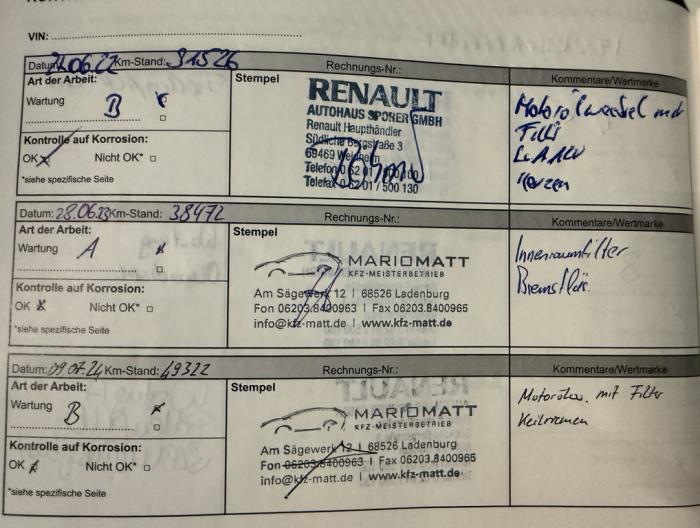 VIN: ........................................
Datum: 24.06.22 Km-Stand: 31526 Rechnungs-Nr.: Kommentare/Wertmarke
Art der Arbeit: Stempel
Wartung B
Kontrolle auf Korrosion:
OK Nicht OK*
*siehe spezifische Seite
RENAULT
AUTOHAUS SPORER GMBH
Renault Haupthändler
Südliche Bergstraße 3
69469 Weinheim
Telefon 0 62 01
Telefax 0 62 01 / 500 130
Motorölwechsel mit
Filter
Kerzen
Datum: 28.06.23 Km-Stand: 38472 Rechnungs-Nr.: Kommentare/Wertmarke
Art der Arbeit: Stempel
Wartung A
Kontrolle auf Korrosion:
OK Nicht OK*
*siehe spezifische Seite
MARIOMATT
KFZ-MEISTERBETRIEB
Am Sägewerk 12 | 68526 Ladenburg
Fon 06203.8400963 | Fax 06203.8400965
info@kfz-matt.de | www.kfz-matt.de
Innenraumfilter
Bremsflüs.
Datum: 09.07.24 Km-Stand: 49322 Rechnungs-Nr.: Kommentare/Wertmarke
Art der Arbeit: Stempel
Wartung B
Kontrolle auf Korrosion:
OK Nicht OK*
*siehe spezifische Seite
MARIOMATT
KFZ-MEISTERBETRIEB
Am Sägewerk 12 | 68526 Ladenburg
Fon 06203.8400963 | Fax 06203.8400965
info@kfz-matt.de | www.kfz-matt.de
mit Filter
Keilriemen